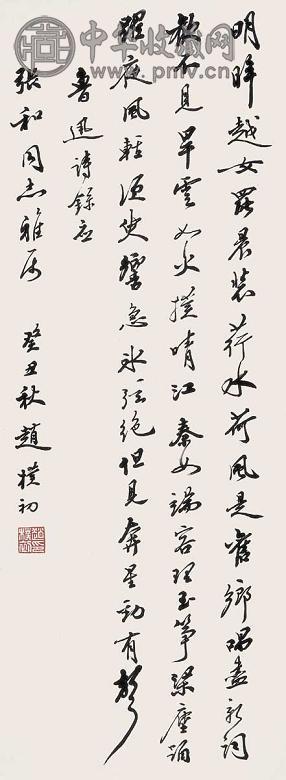 中华收藏网
www.pmv.cn
明眸越女罷晨裝荇水荷風是舊鄉唱盡新詞
歡不見旱雲如火撲晴江秦女端容理玉箏梁塵踊
躍夜風輕須臾響急冰弦絕但見奔星勁有聲
魯迅詩錄應
張和同志雅属 癸丑秋趙樸初